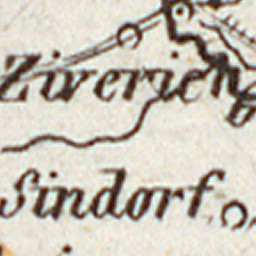 Ziverich
Sindorf